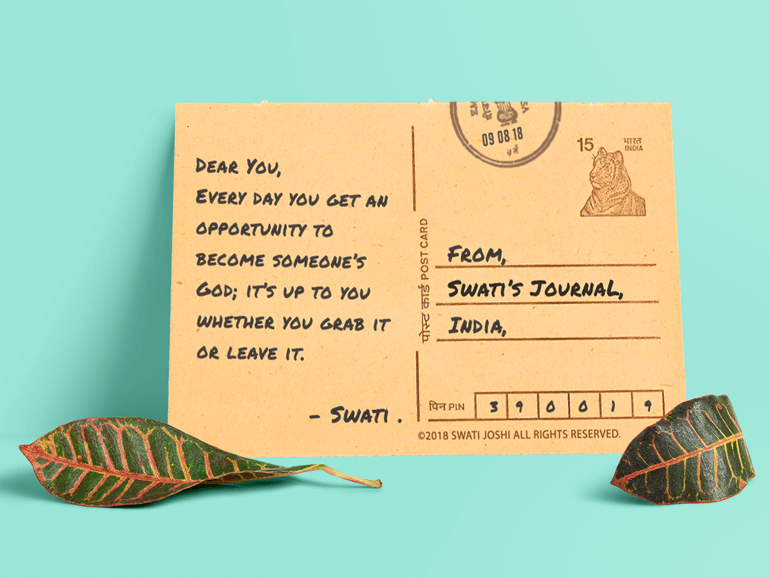 DEAR YOU,
EVERY DAY YOU GET AN
OPPORTUNITY TO
BECOME SOMEONE'S
GOD; IT'S UP TO YOU
WHETHER YOU GRAB IT
OR LEAVE IT.
- SWATI.
पोस्ट कार्ड POST CARD
09 08 18
15
भारत
INDIA
FROM,
SWATI'S JOURNAL,
INDIA,
पिन PIN 390019
©2018 SWATI JOSHI ALL RIGHTS RESERVED.